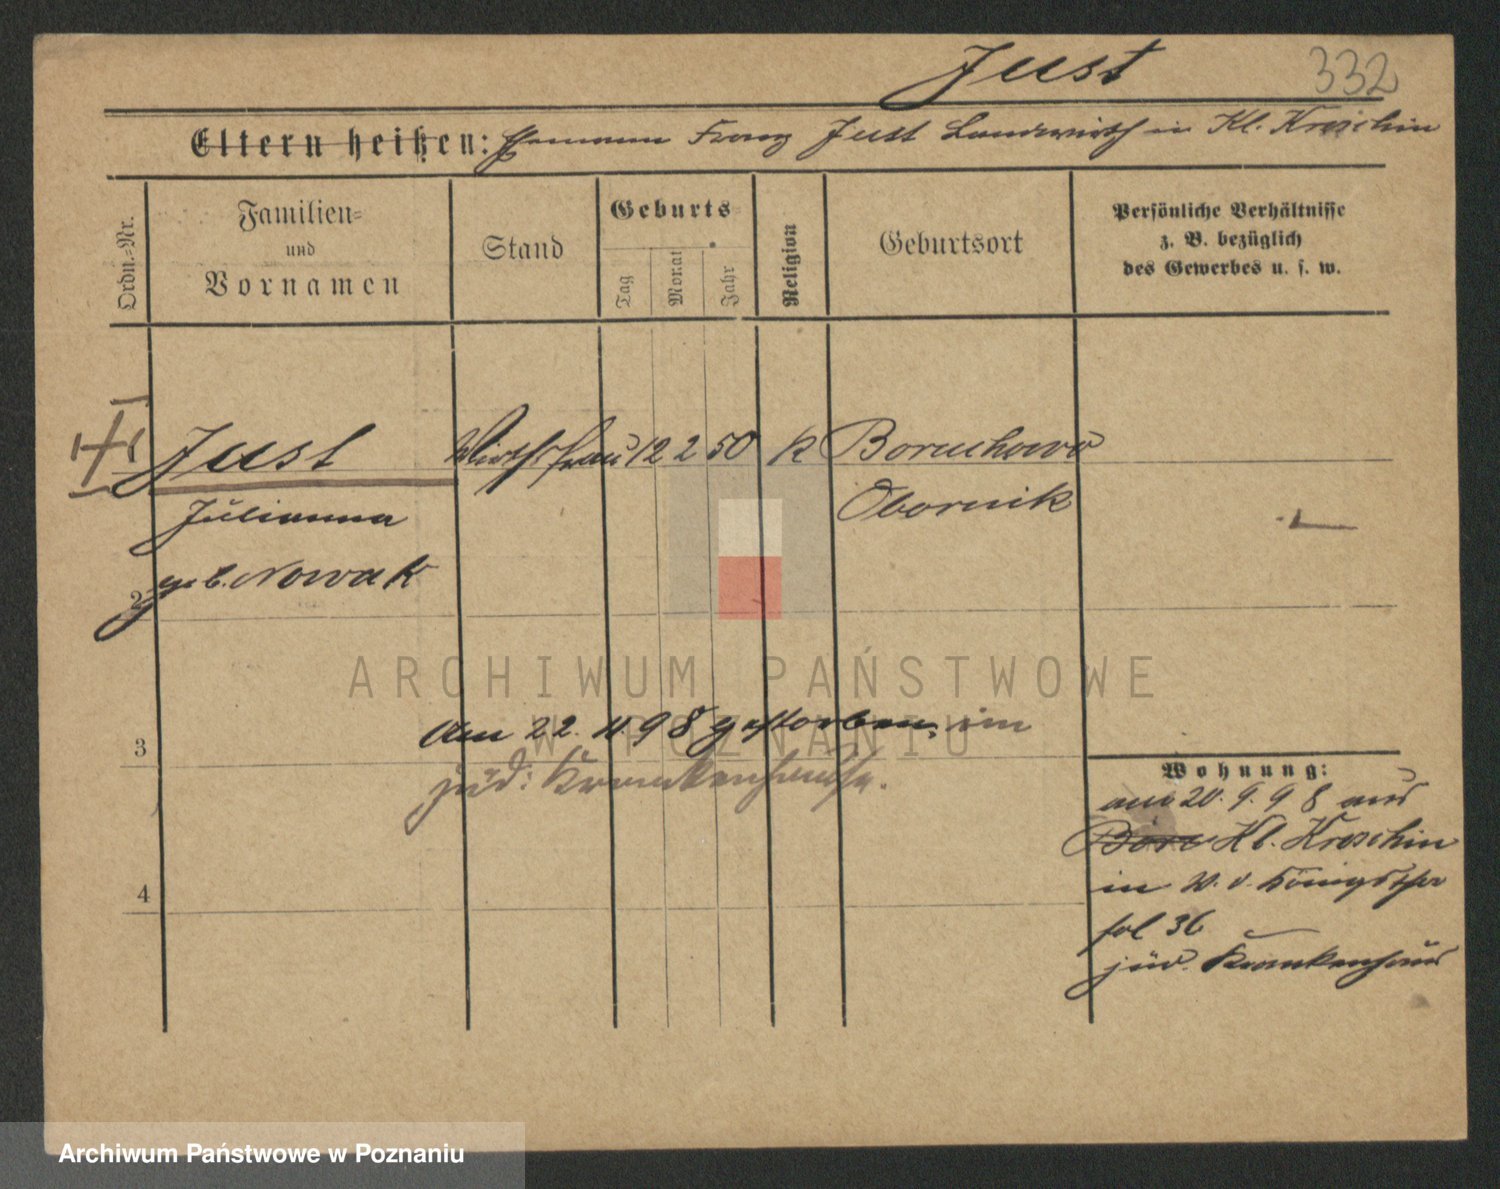 Just 332
Eltern heißen: Ehemann Franz Just Landwirth in Kl. Kroschin
Ordn.-Nr.
Familien-
und
Vornamen
Stand
Geburts-
Tag
Monat
Jahr
Religion
Geburtsort
Persönliche Verhältnisse
z. B. bezüglich
des Gewerbes u. s. w.
Just Wirthsfrau 12 2 50 k Boruchowo
Julianna Obornik
geb. Nowak
2
ARCHIWUM PAŃSTWOWE
W POZNANIU
Am 22. 11. 98 gestorben, im
jüd. Krankenhause.
3
4
Wohnung:
am 20. 9. 98 aus
Kl. Kroschin
in
fol 36
jüd. Krankenhaus
Archiwum Państwowe w Poznaniu